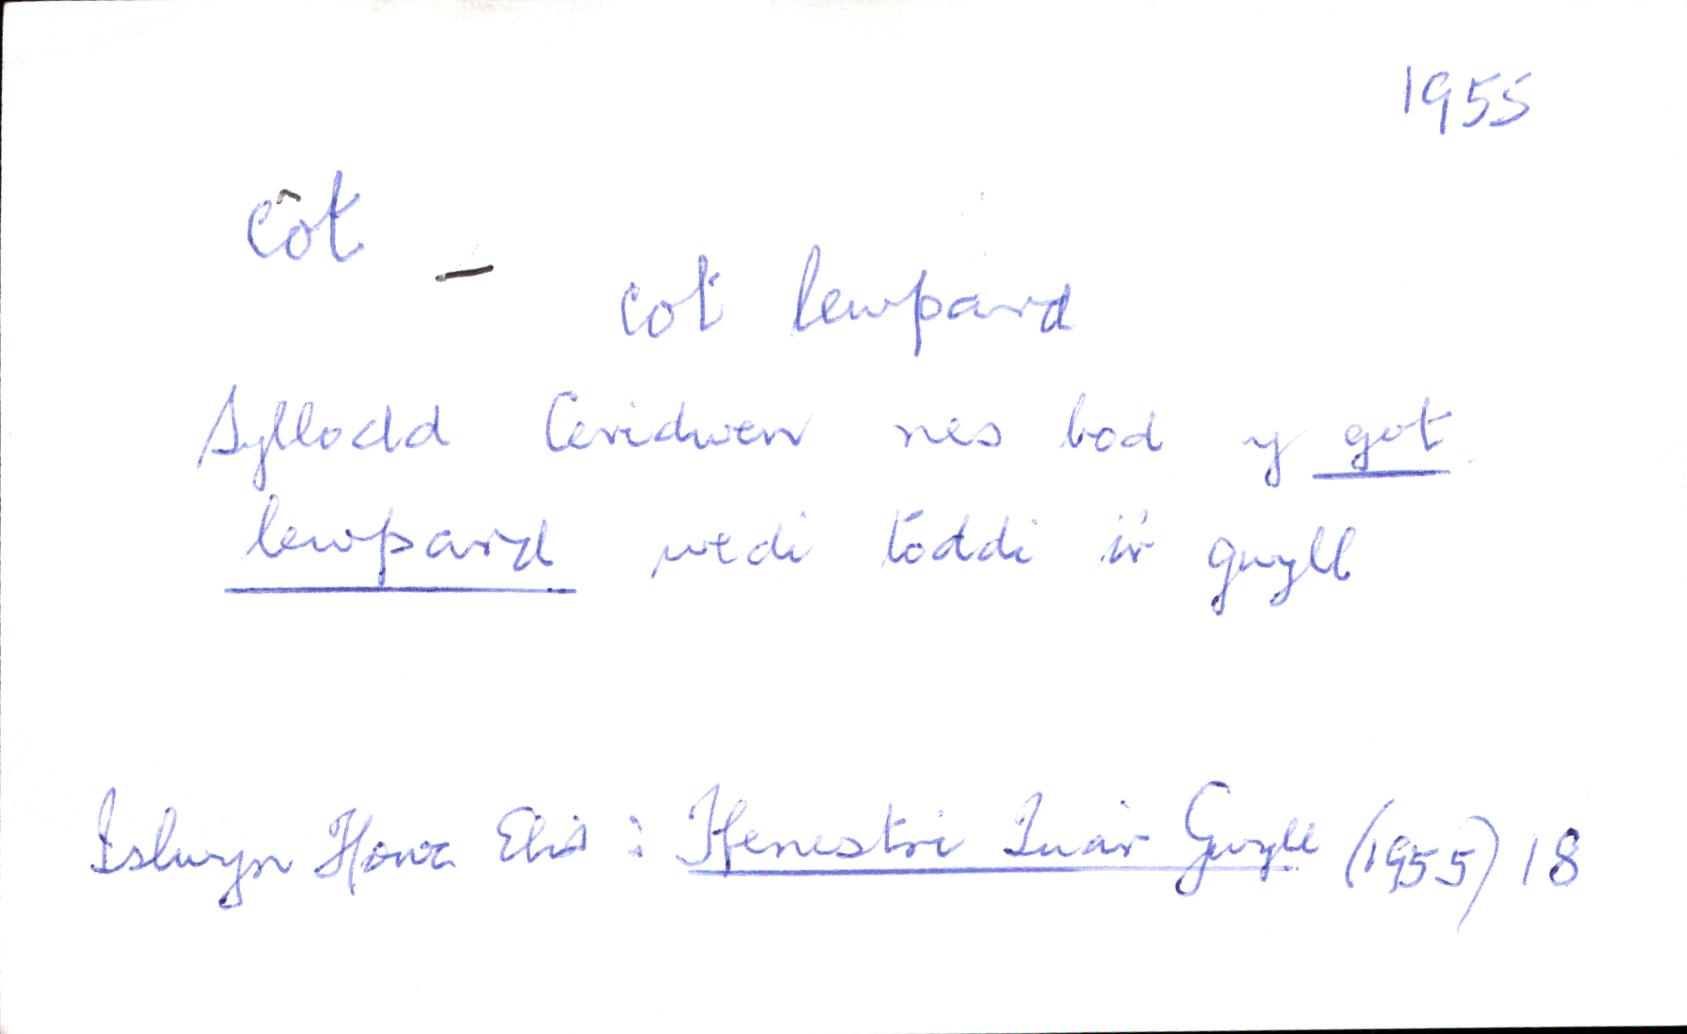 1955
côt –
cot lewpard
Syllodd Ceridwen nes bod y got
lewpard wedi toddi i'r gwyll
Islwyn Ffowc Elis : Ffenestri Tua'r Gwyll (1955) 18